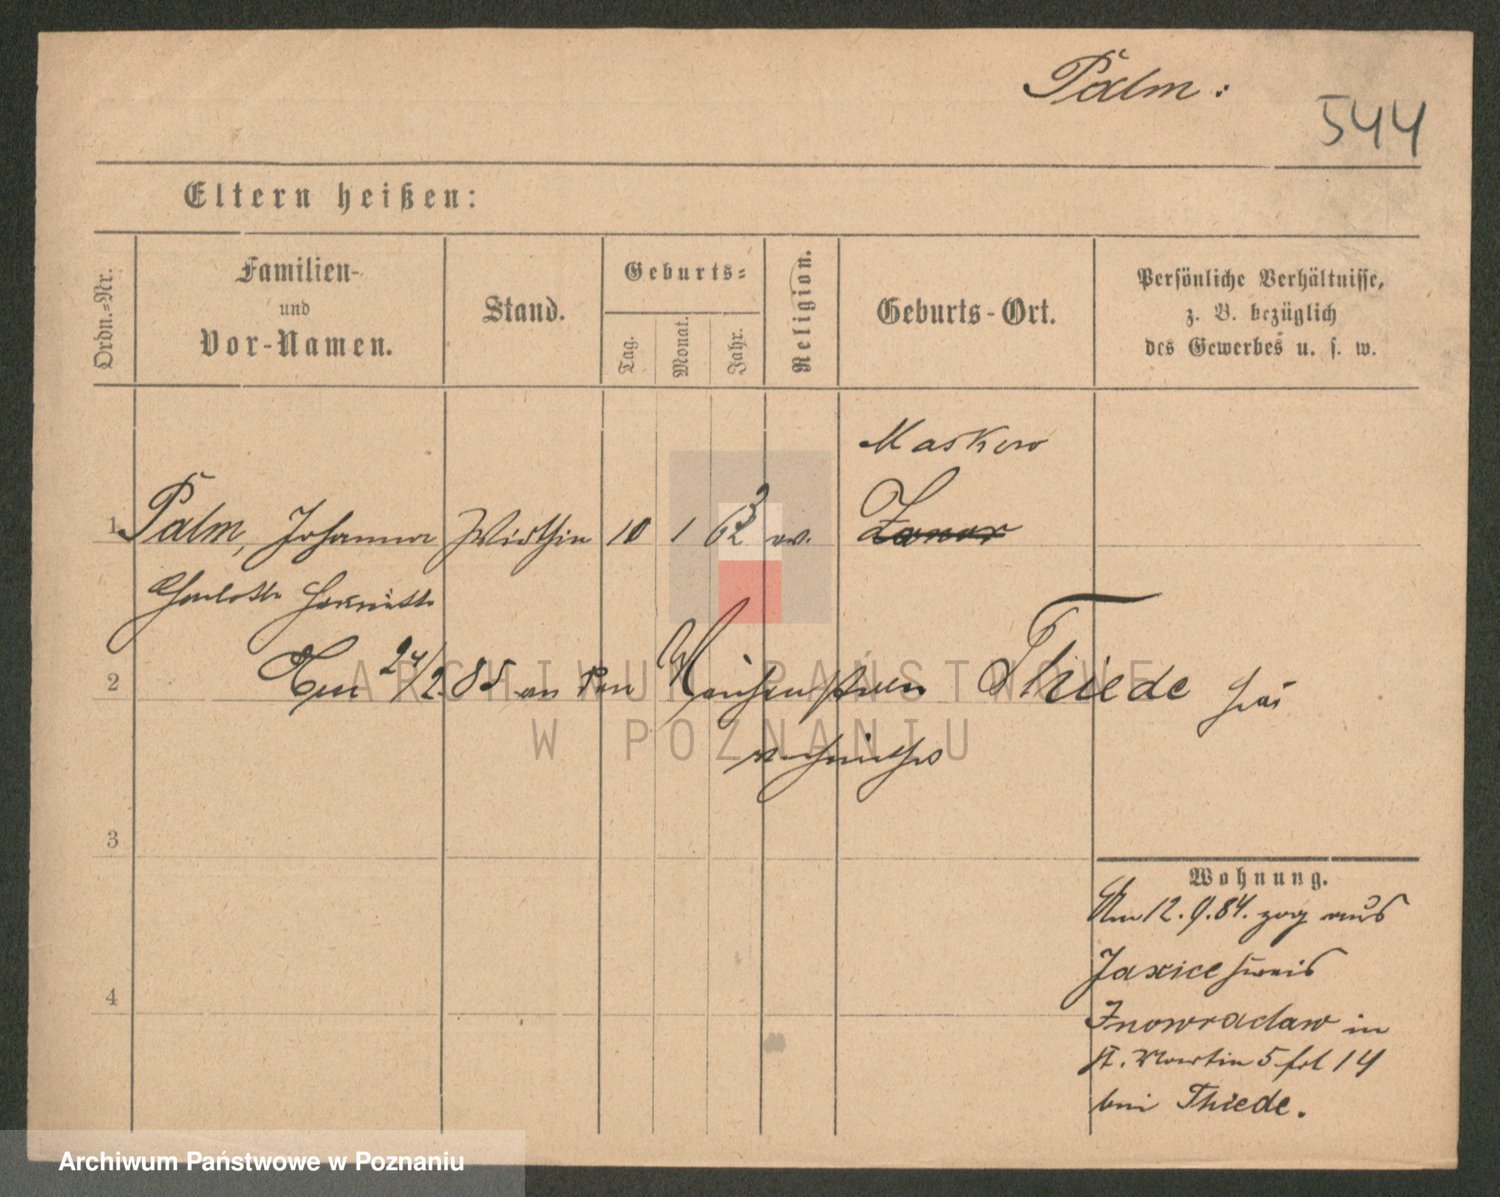 Palm:
544
Eltern heißen:
Ordn.-Nr.
Familien-
und
Vor-Namen.
Stand.
Geburts-
Tag.
Monat.
Jahr.
Religion.
Geburts-Ort.
Persönliche Verhältnisse,
z. B. bezüglich
des Gewerbes u. s. w.
Maskow
1 Palm, Johanna Wirthin 10 1 63 ev.
Charlotte Henriette
2 Am 24/2. 85 an den Thiede hier
verheirathet
3
4
Wohnung.
Am 12.9.84. zog aus
Jaxice Kreis
Inowraclaw in
St. Martin 5 fol 14
bei Thiede.
ARCHIWUM PAŃSTWOWE
W POZNANIU
Archiwum Państwowe w Poznaniu